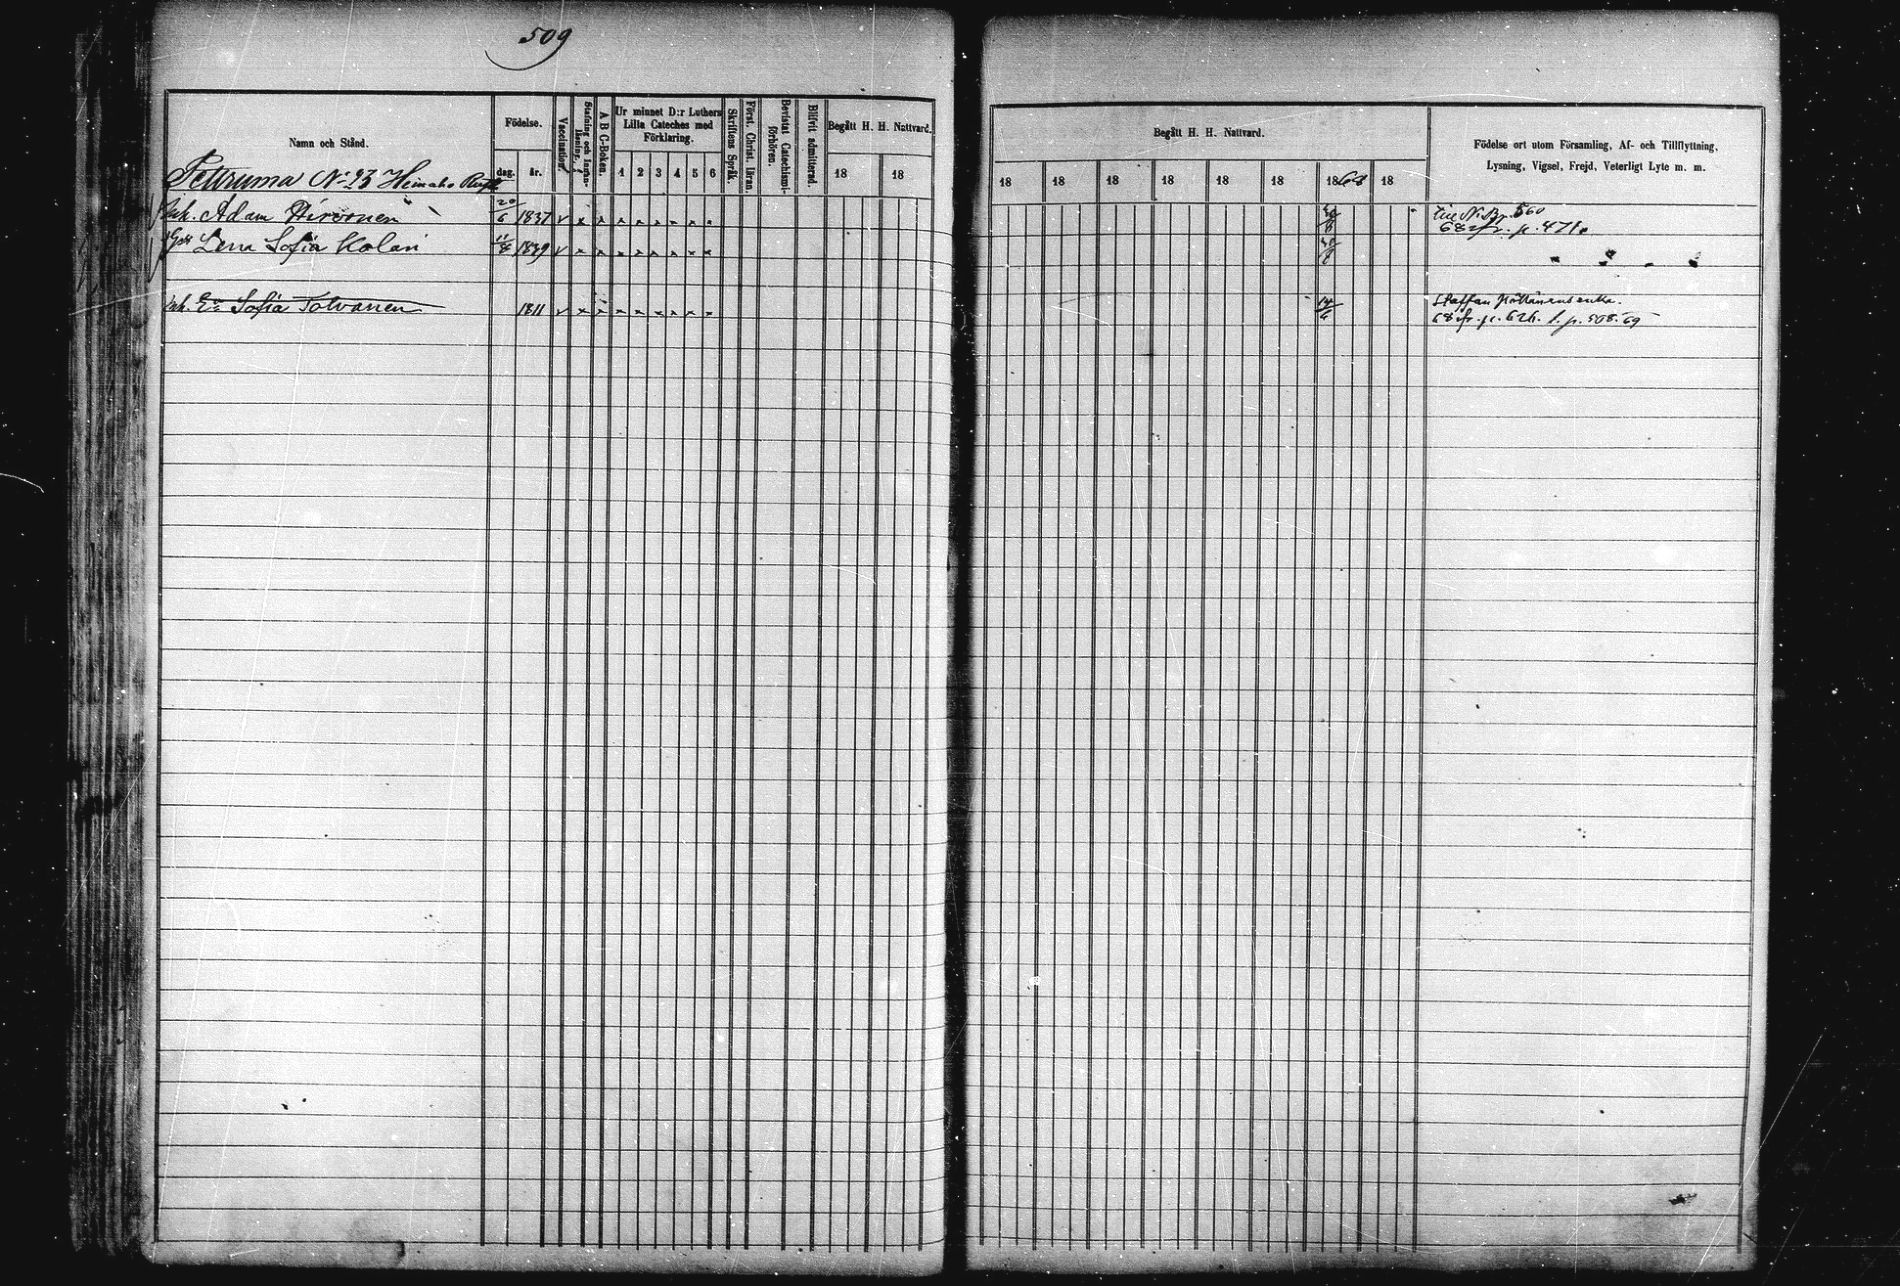 509
Namn och Stånd.
Födelse.
dag.
år.
Vaccination.
Stafning och Innan-läsning.
A B C-Boken.
Ur minnet D:r Luthers
Lilla Cateches med
Förklaring.
1 2 3 4 5 6
Skriftens Språk.
Först. Christ. läran.
Bevistat Catechismi-förhören.
Blifvit admitterad.
Begått H. H. Nattvard.
18 18
N:o 23 Heinaho
Inh. Adam Hirvonen 20/6 1837
Lena Sofia Kolari 11/8 1839
Inh. E:a Sofia Tolvanen 1811
Begått H. H. Nattvard.
18 18 18 18 18 18 1868 18
Födelse ort utom Församling, Af- och Tillflyttning,
Lysning, Vigsel, Frejd, Veterligt Lyte m. m.
560
68 fr. p. 471.
14/6
Staffan enka.
68 fr. p. 626. t. p. 508. 69